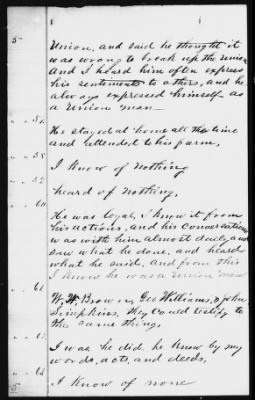 5
Union, and said he thought it
was wrong to break up the union
And I heard him often express
his sentiments to others, and he
always expressed himself as
a Union man—
" " 34.
He stayed at home all the time
and attended to his farm,
" " 38.
I know of nothing
" " 39
heard of nothing,
" " 60
He was loyal, I know it from
his actions, and his conversations
was with him almost daily, and
saw what he done, and heard
what he said, and from this
I know he was a Union man
" " 61
W. W. Brown, Geo Williams, & John
Simpkins, they could testify to
the same thing,
" 62
I was he did. he know by my
words, acts, and deeds,
" 64
5
I know of none